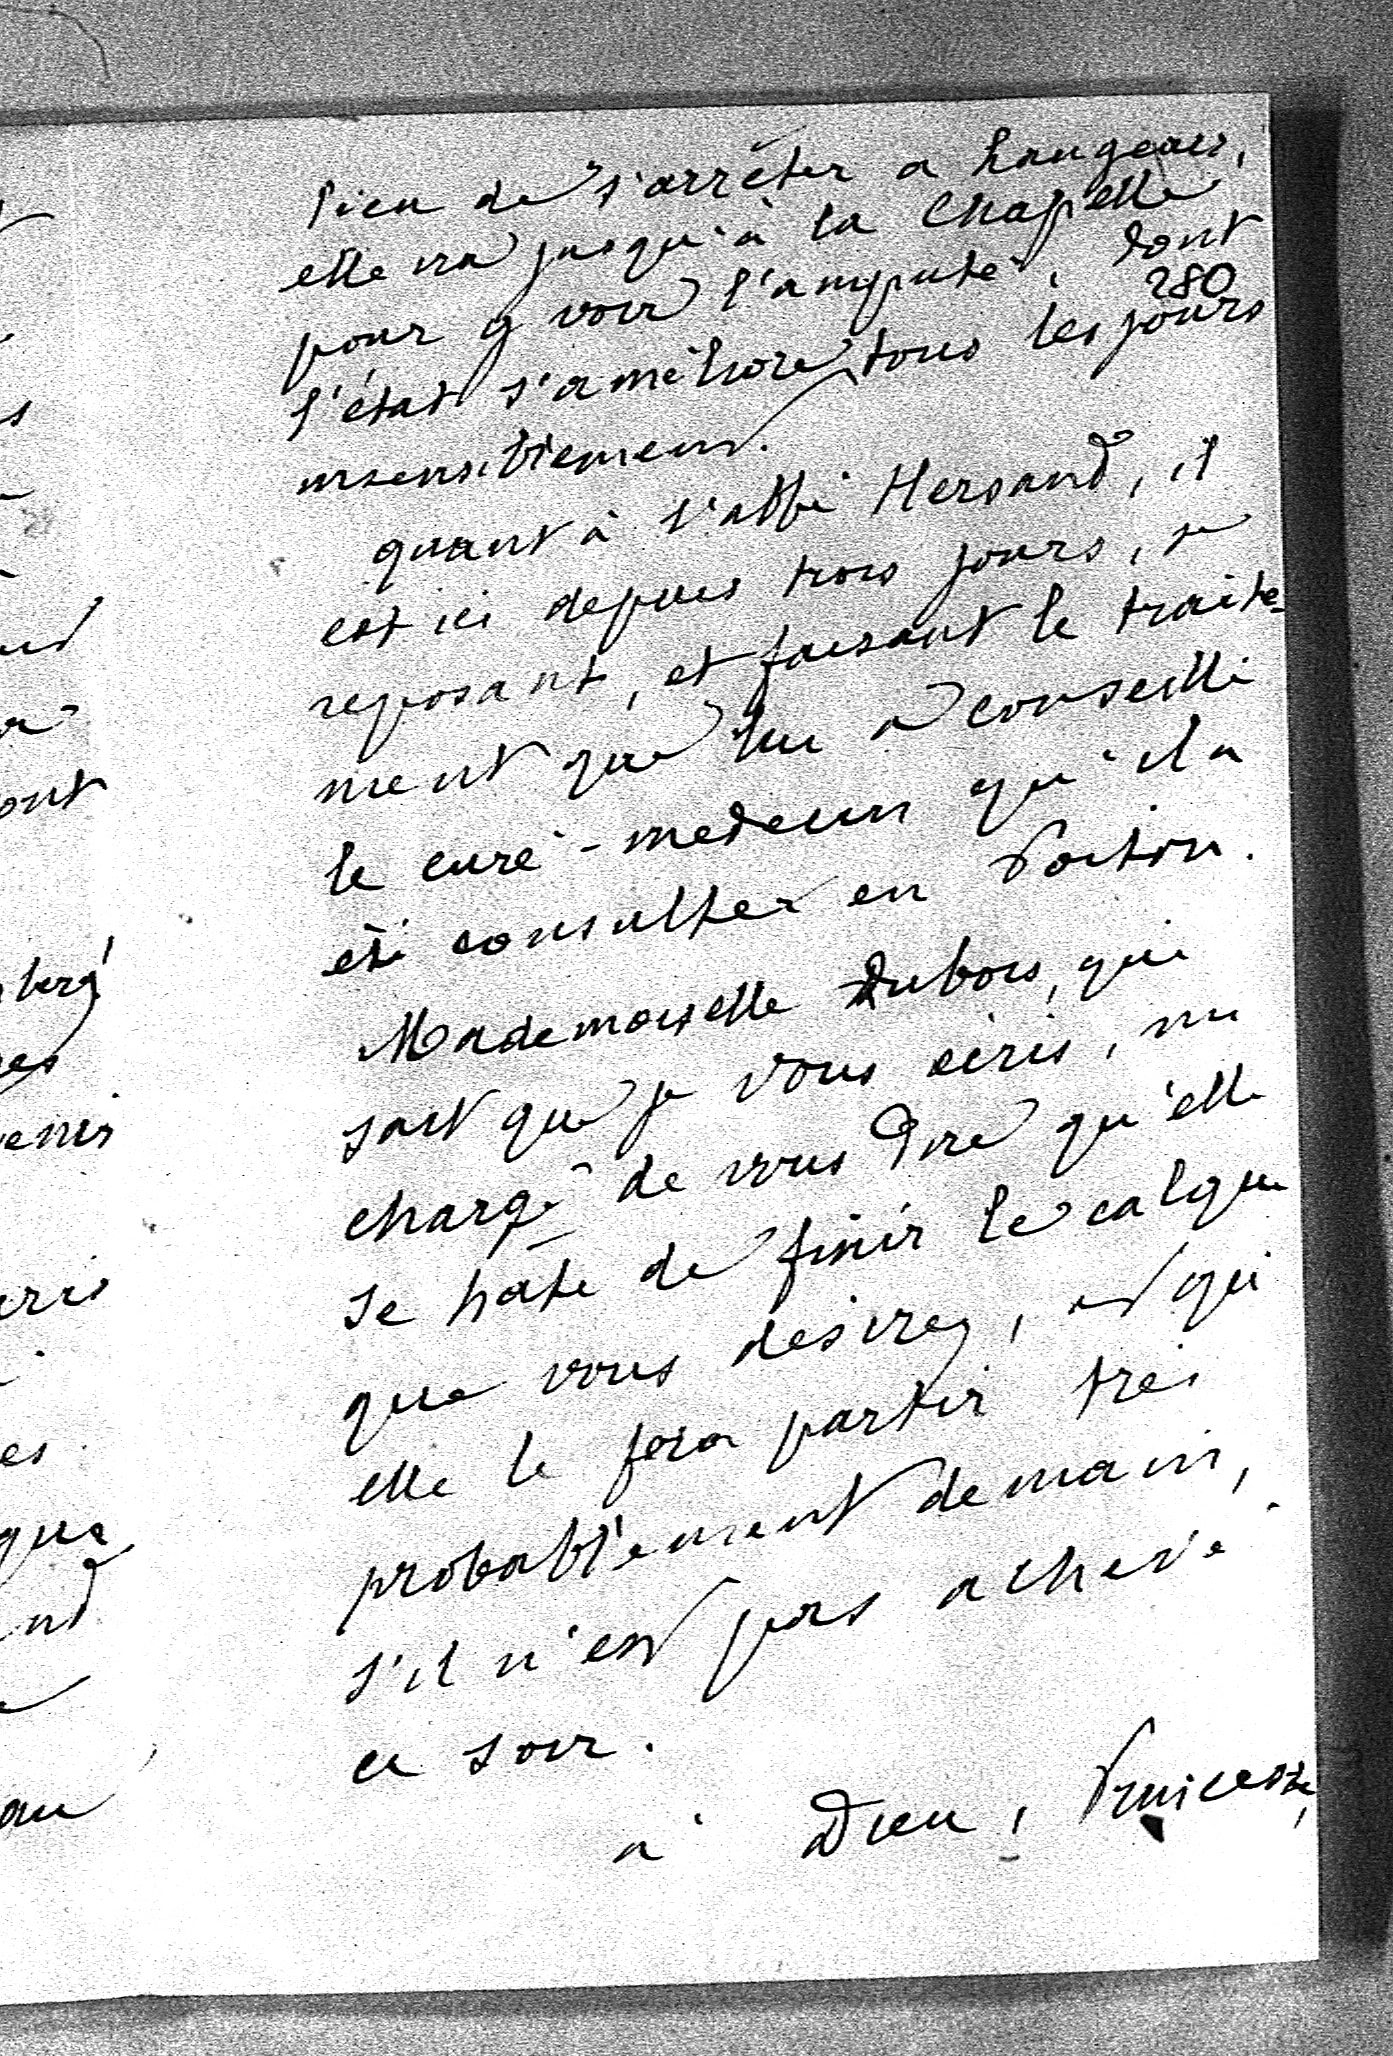 lieu de s'arrêter a Langeais,
elle va jusqu'à la Chapelle
pour y voir l'amputé, dont
280
l'état s'améliore tous les jours
insensiblement.
quant à l'abbé Hersand, il
est ici depuis trois jours, se
reposant, et faisant le traite-
ment que lui a conseillé
le curé-medecin qu'il a
été consulter en Poitou.
Mademoiselle Dubois, qui
sait que je vous écris, me
charge de vous dire qu'elle
se hate de finir le calque
que vous desirez, et qui
elle le fera partir très
probablement demain,
s'il n'est pas achevé
ce soir.
a Dieu, Princesse,
ont
enir
es
que